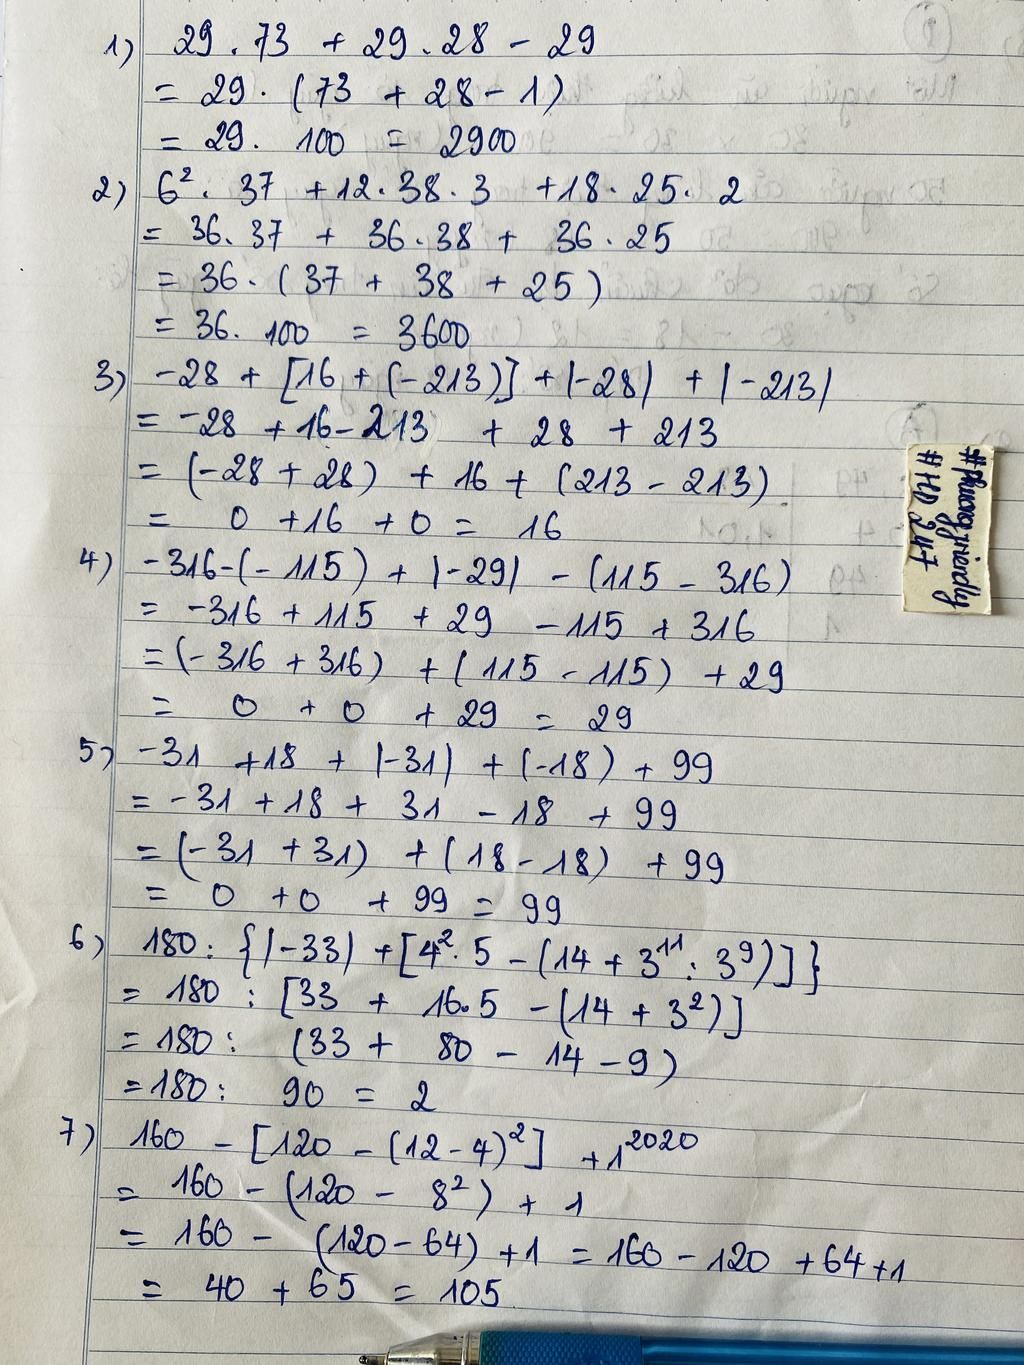 1) 29.73 + 29.28 - 29
= 29. (73 + 28 - 1)
= 29. 100 = 2900
2) 6². 37 + 12.38.3 + 18.25.2
= 36.37 + 36.38 + 36.25
= 36. (37 + 38 + 25)
= 36. 100 = 3600
3) -28 + [16 + (-213)] + |-28| + |-213|
= -28 + 16 - 213 + 28 + 213
= (-28 + 28) + 16 + (213 - 213)
= 0 + 16 + 0 = 16
4) -316 - (-115) + |-29| - (115 - 316)
= -316 + 115 + 29 - 115 + 316
= (-316 + 316) + (115 - 115) + 29
= 0 + 0 + 29 = 29
5) -31 + 18 + |-31| + (-18) + 99
= -31 + 18 + 31 - 18 + 99
= (-31 + 31) + (18 - 18) + 99
= 0 + 0 + 99 = 99
6) 180 : {|-33| + [4². 5 - (14 + 3¹¹ : 3⁹)]}
= 180 : [33 + 16.5 - (14 + 3²)]
= 180 : (33 + 80 - 14 - 9)
= 180 : 90 = 2
7) 160 - [120 - (12 - 4)²] + 1²⁰²⁰
= 160 - (120 - 8²) + 1
= 160 - (120 - 64) + 1 = 160 - 120 + 64 + 1
= 40 + 65 = 105
#HD247